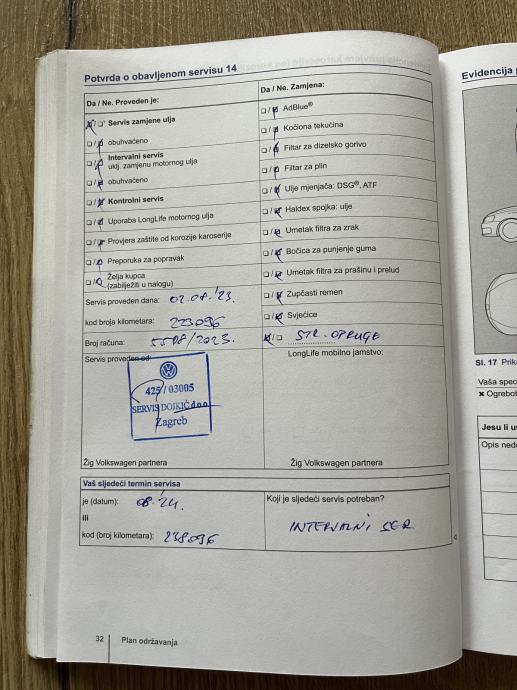 Potvrda o obavljenom servisu 14
Da / Ne. Proveden je:
❑/❑ Servis zamjene ulja
❑/❑ obuhvaćeno
❑/❑ Intervalni servis
uklj. zamjenu motornog ulja
❑/❑ obuhvaćeno
❑/❑ Kontrolni servis
❑/❑ Uporaba LongLife motornog ulja
❑/❑ Provjera zaštite od korozije karoserije
❑/❑ Preporuka za popravak
❑/❑ Želja kupca
(zabilježiti u nalogu)
Servis proveden dana: 02.08.'23.
kod broja kilometara: 223096
Broj računa: 5508/2023.
Servis proveden od:
425 / 03005
SERVIS DOJKIĆ d.o.o.
Zagreb
Žig Volkswagen partnera
Da / Ne. Zamjena:
❑/❑ AdBlue®
❑/❑ Kočiona tekućina
❑/❑ Filtar za dizelsko gorivo
❑/❑ Filtar za plin
❑/❑ Ulje mjenjača: DSG®, ATF
❑/❑ Haldex spojka: ulje
❑/❑ Umetak filtra za zrak
❑/❑ Bočica za punjenje guma
❑/❑ Umetak filtra za prašinu i prelud
❑/❑ Zupčasti remen
❑/❑ Svjećice
❑/❑ STR. OPRUGE
LongLife mobilno jamstvo:
Žig Volkswagen partnera
Vaš sljedeći termin servisa
je (datum): 08.'24.
ili
kod (broj kilometara): 238096
Koji je sljedeći servis potreban?
INTERVALNI SER
32 Plan održavanja
Evidencija
Sl. 17
Vaša spec
✖ Ogrebot
Jesu li u
Opis ned